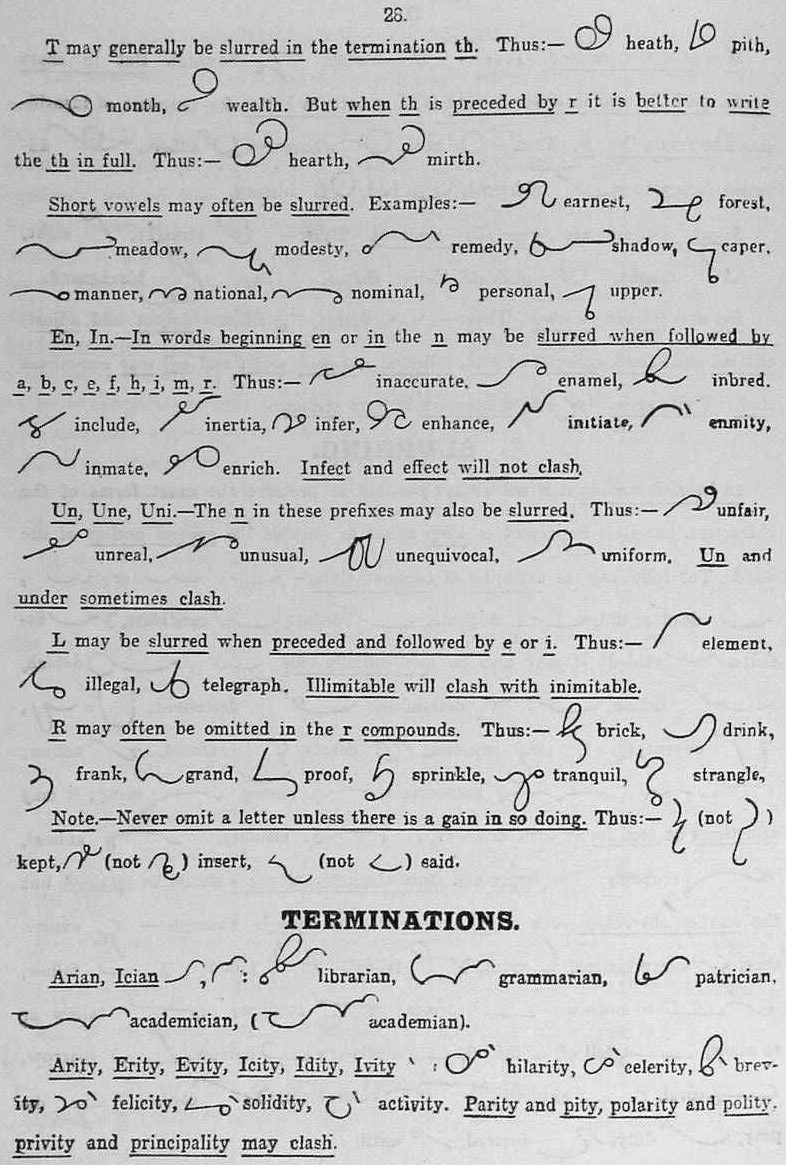 28.
T may generally be slurred in the termination th. Thus:— heath, pith,
month, wealth. But when th is preceded by r it is better to write
the th in full. Thus:— hearth, mirth.
Short vowels may often be slurred. Examples:— earnest, forest,
meadow, modesty, remedy, shadow, caper,
manner, national, nominal, personal, upper.
En, In.—In words beginning en or in the n may be slurred when followed by
a, b, c, e, f, h, i, m, r. Thus:— inaccurate, enamel, inbred.
include, inertia, infer, enhance, initiate, enmity,
inmate, enrich. Infect and effect will not clash.
Un, Une, Uni.—The n in these prefixes may also be slurred. Thus:— unfair,
unreal, unusual, unequivocal, uniform. Un and
under sometimes clash.
L may be slurred when preceded and followed by e or i. Thus:— element,
illegal, telegraph. Illimitable will clash with inimitable.
R may often be omitted in the r compounds. Thus:— brick, drink,
frank, grand, proof, sprinkle, tranquil, strangle,
Note.—Never omit a letter unless there is a gain in so doing. Thus:— (not )
kept, (not ) insert, (not ) said.
TERMINATIONS.
Arian, Ician , : librarian, grammarian, patrician,
academician, ( academian).
Arity, Erity, Evity, Icity, Idity, Ivity : hilarity, celerity, brev-
ity, felicity, solidity, activity. Parity and pity, polarity and polity,
privity and principality may clash.